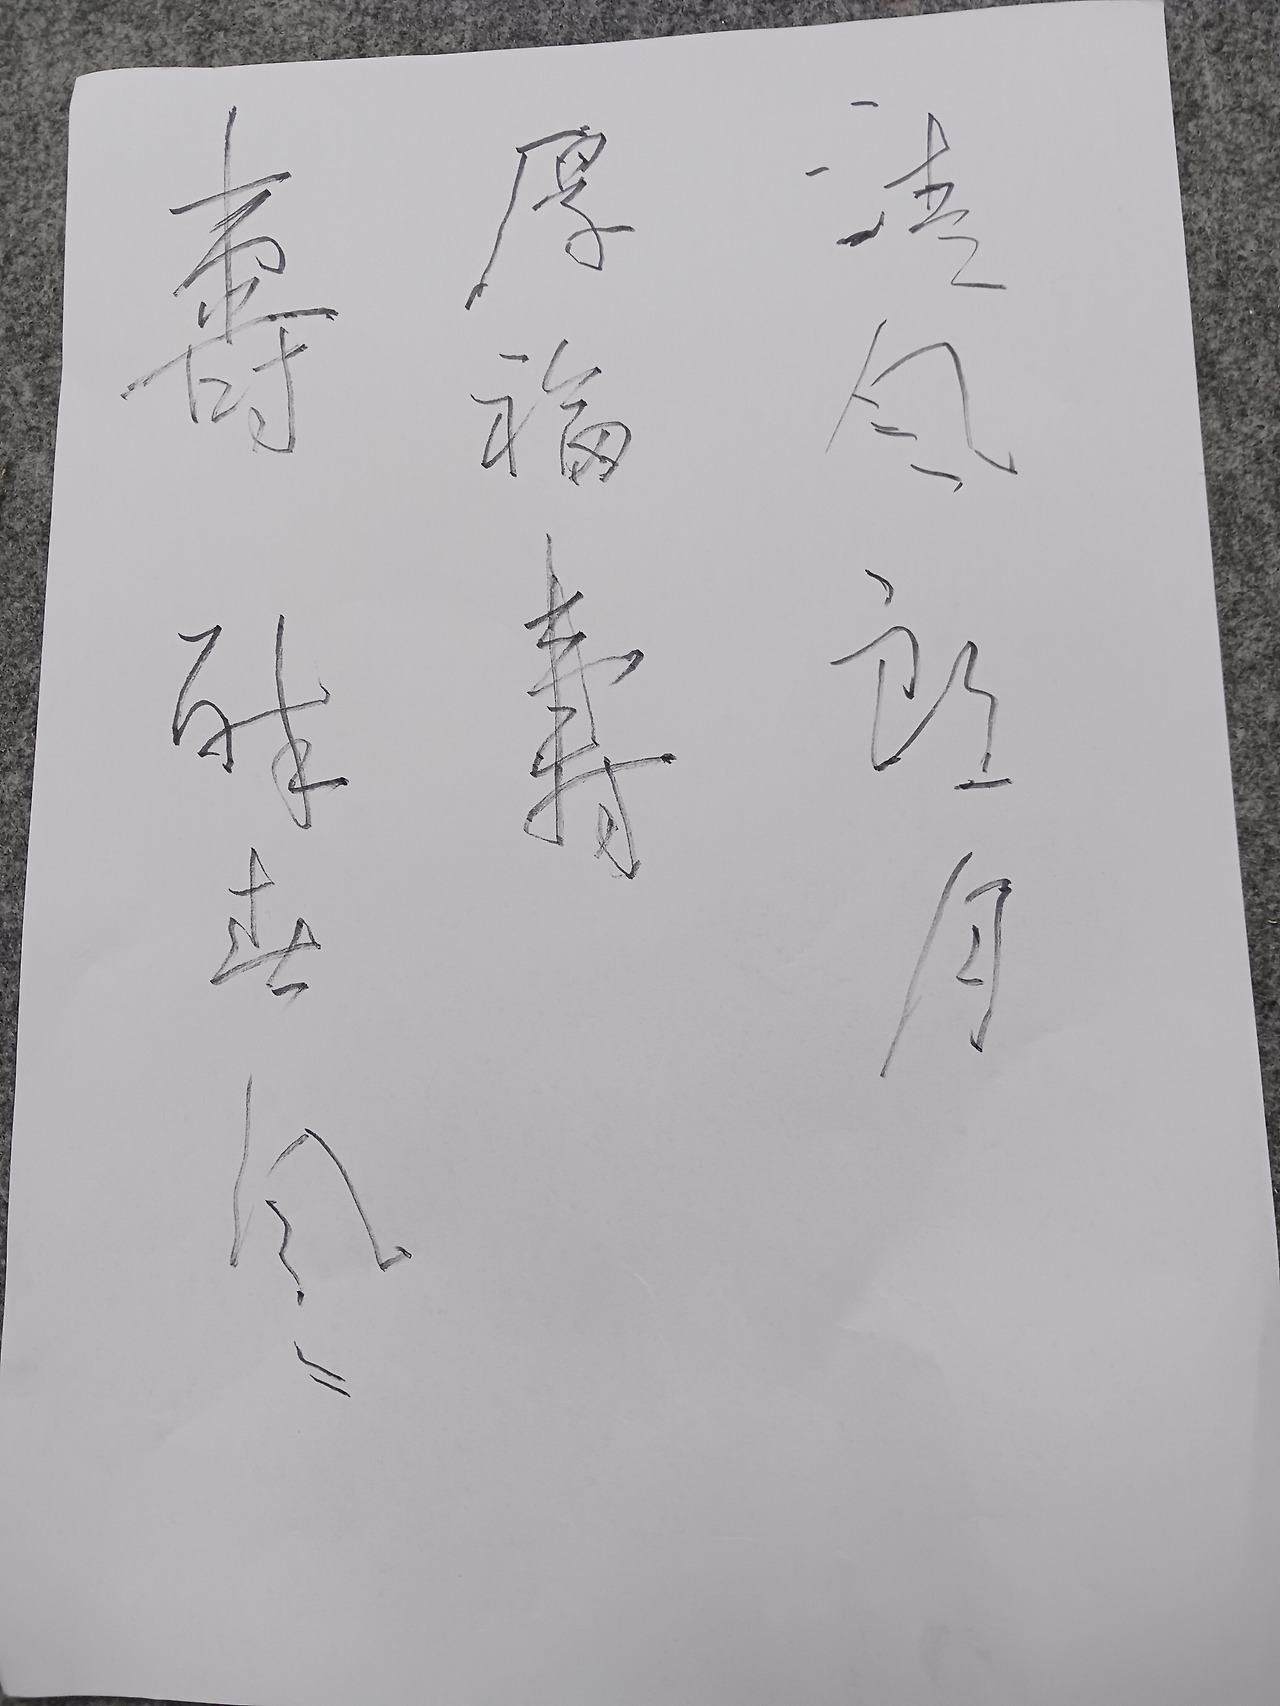 清风朗月
厚福寿
寿醉春风